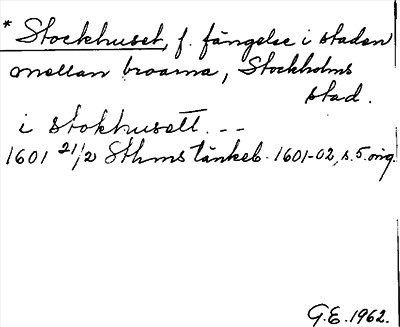 * Stockhuset, f. fängelse i staden
mellan broarna, Stockholms
stad.
i stokhusett. --
1601 21/2 Sthms tänkeb. 1601-02, s. 5. orig.
G.E. 1962.